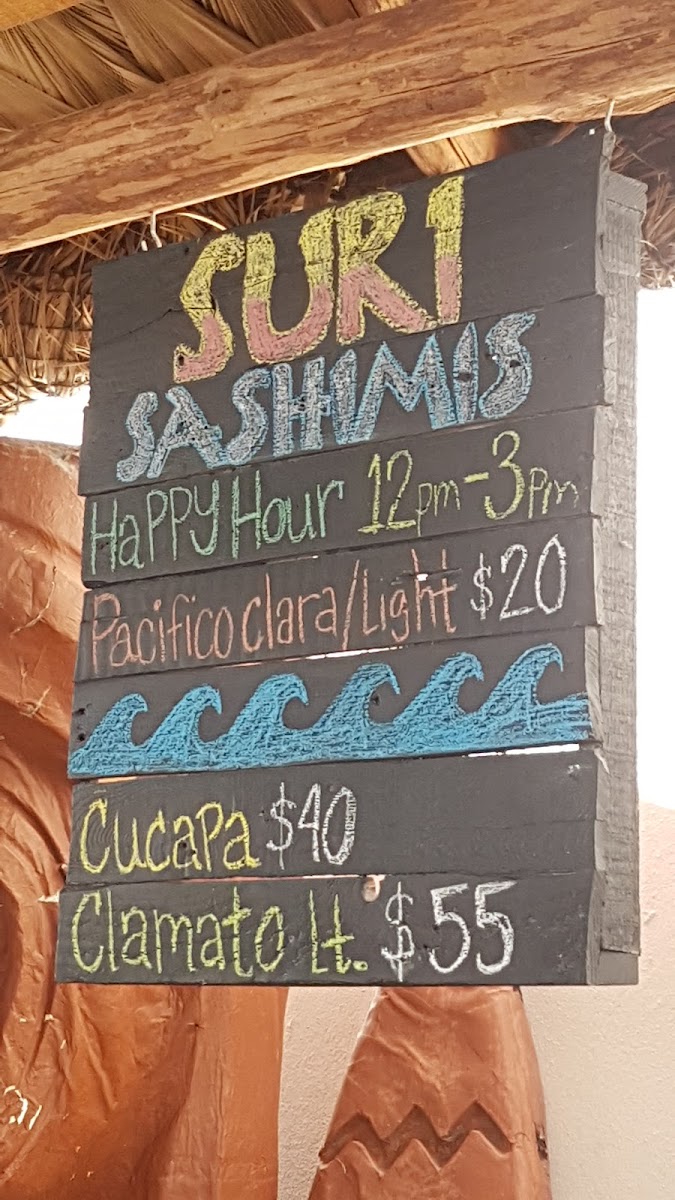 SURI
SASHIMIS
Happy Hour 12pm-3pm
Pacifico clara/Light $20
Cucapa $40
Clamato Lt. $55